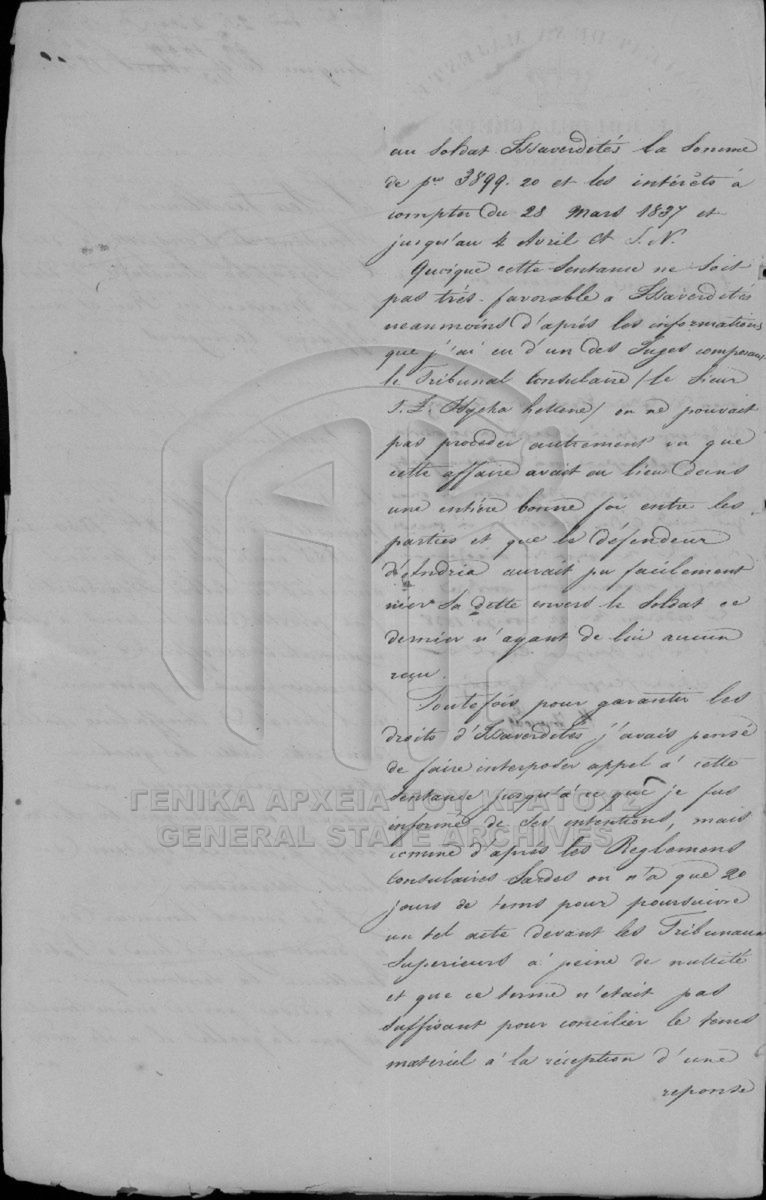 au Soldat Issaverdetés la Somme
de pres 3899.20 et les intérêts à
compter du 28 Mars 1837 et
jusqu'au 4 Avril Ct S. N.
Quoique cette Sentance ne Soit
pas très favorable a Issaverdetés
neaumoins d'après les informations
que j'ai eu d'un des Juges composans
le Tribunal Consulaire / le Sieur
hellene / on ne pouvait
pas proceder autrement vu que
cette affaire avait eu lieu dans
une entière bonne foi entre les
parties et que le défendeur
d'Andria aurait pu facilement
nier Sa dette envers le Soldat ce
dernier n'ayant de lui aucun
reçu.
Toutefois pour garantir les
droits d'Issaverdetés j'avais pensé
de faire interposer appel à cette
Sentance jusqu'à ce que je fus
informé de Ses intentions, mais
comme d'après les Reglemens
Consulaires Sardes on n'a que 20
jours de tems pour poursuivre
un tel acte devant les Tribunaux
Superieurs à peine de nullité
et que ce terme n'etait pas
Suffisant pour concilier le tems
materiel à la réception d'une
reponse
ΓΕΝΙΚΑ ΑΡΧΕΙΑ ΤΟΥ ΚΡΑΤΟΥΣ
GENERAL STATE ARCHIVES